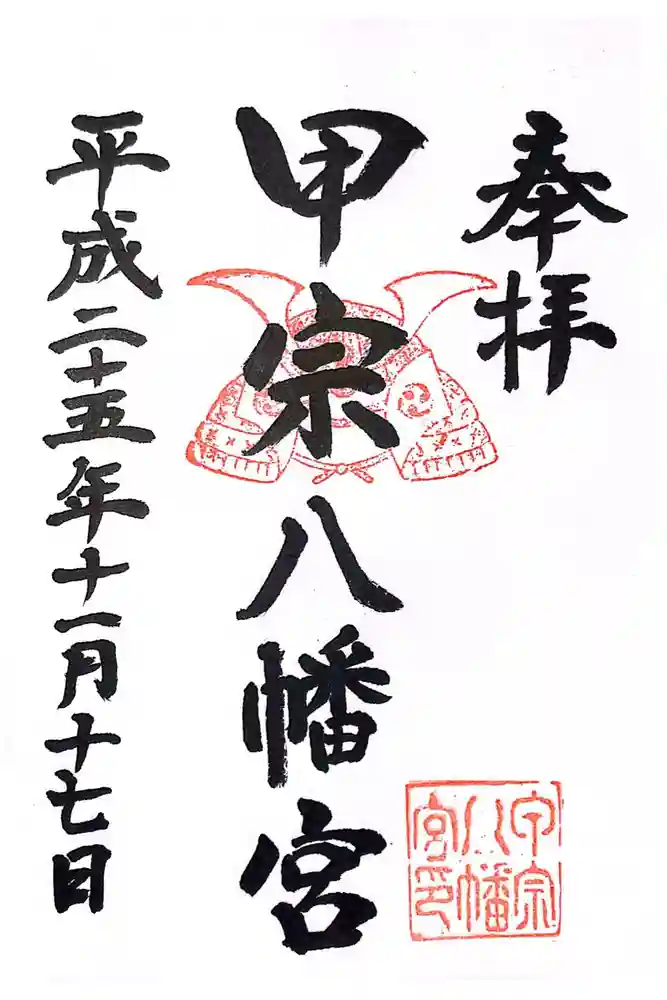 奉拝
甲宗八幡宮
甲宗
八幡
宮印
平成二十五年十一月十七日